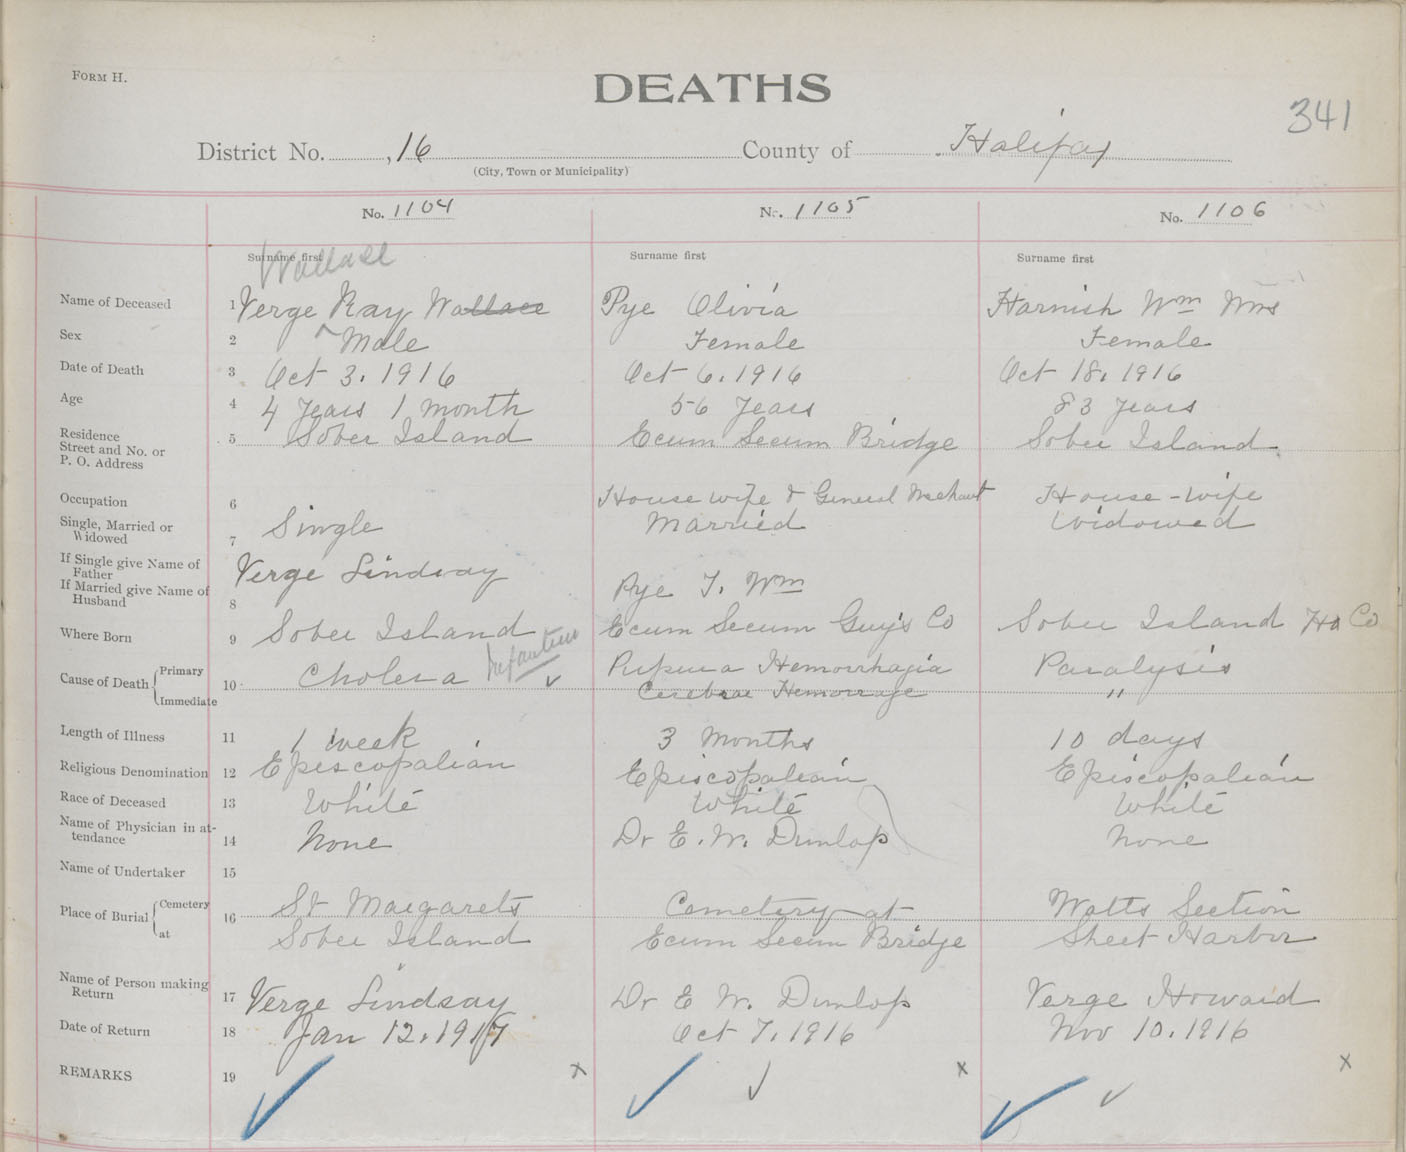 FORM H.
DEATHS
341
District No. 16 County of Halifax
(City, Town or Municipality)
No. 1104 No. 1105 No. 1106
Surname first Surname first Surname first
Wallace
Name of Deceased 1 Verge Ray Wallace Pye Olivia Harnish Wm Mrs
Sex 2 Male Female Female
Date of Death 3 Oct 3. 1916 Oct 6. 1916 Oct 18. 1916
Age 4 4 Years 1 month 56 Years 83 years
Residence Street and No. or P. O. Address 5 Sober Island Ecum Secum Bridge Sober Island
Occupation 6 House wife & General Merchant House-wife
Single, Married or Widowed 7 Single Married Widowed
If Single give Name of Father Verge Lindsay
If Married give Name of Husband 8 Pye J. Wm
Where Born 9 Sober Island Ecum Secum Guy's Co Sober Island Hx Co
Cause of Death Primary Immediate 10 Cholera Infantum Purpura Hemorrhagia Paralysis
Cerebrae Hemorrage "
Length of Illness 11 1 week 3 Months 10 days
Religious Denomination 12 Episcopalian Episcopalian Episcopalian
Race of Deceased 13 White White White
Name of Physician in attendance 14 None Dr E. W. Dunlop None
Name of Undertaker 15
Place of Burial Cemetery at 16 St Margarets Cemetery at Watts Section
Sober Island Ecum Secum Bridge Sheet Harbor
Name of Person making Return 17 Verge Lindsay Dr E W. Dunlop Verge Howard
Date of Return 18 Jan 12. 1917 Oct 7. 1916 Nov 10. 1916
REMARKS 19 x x x